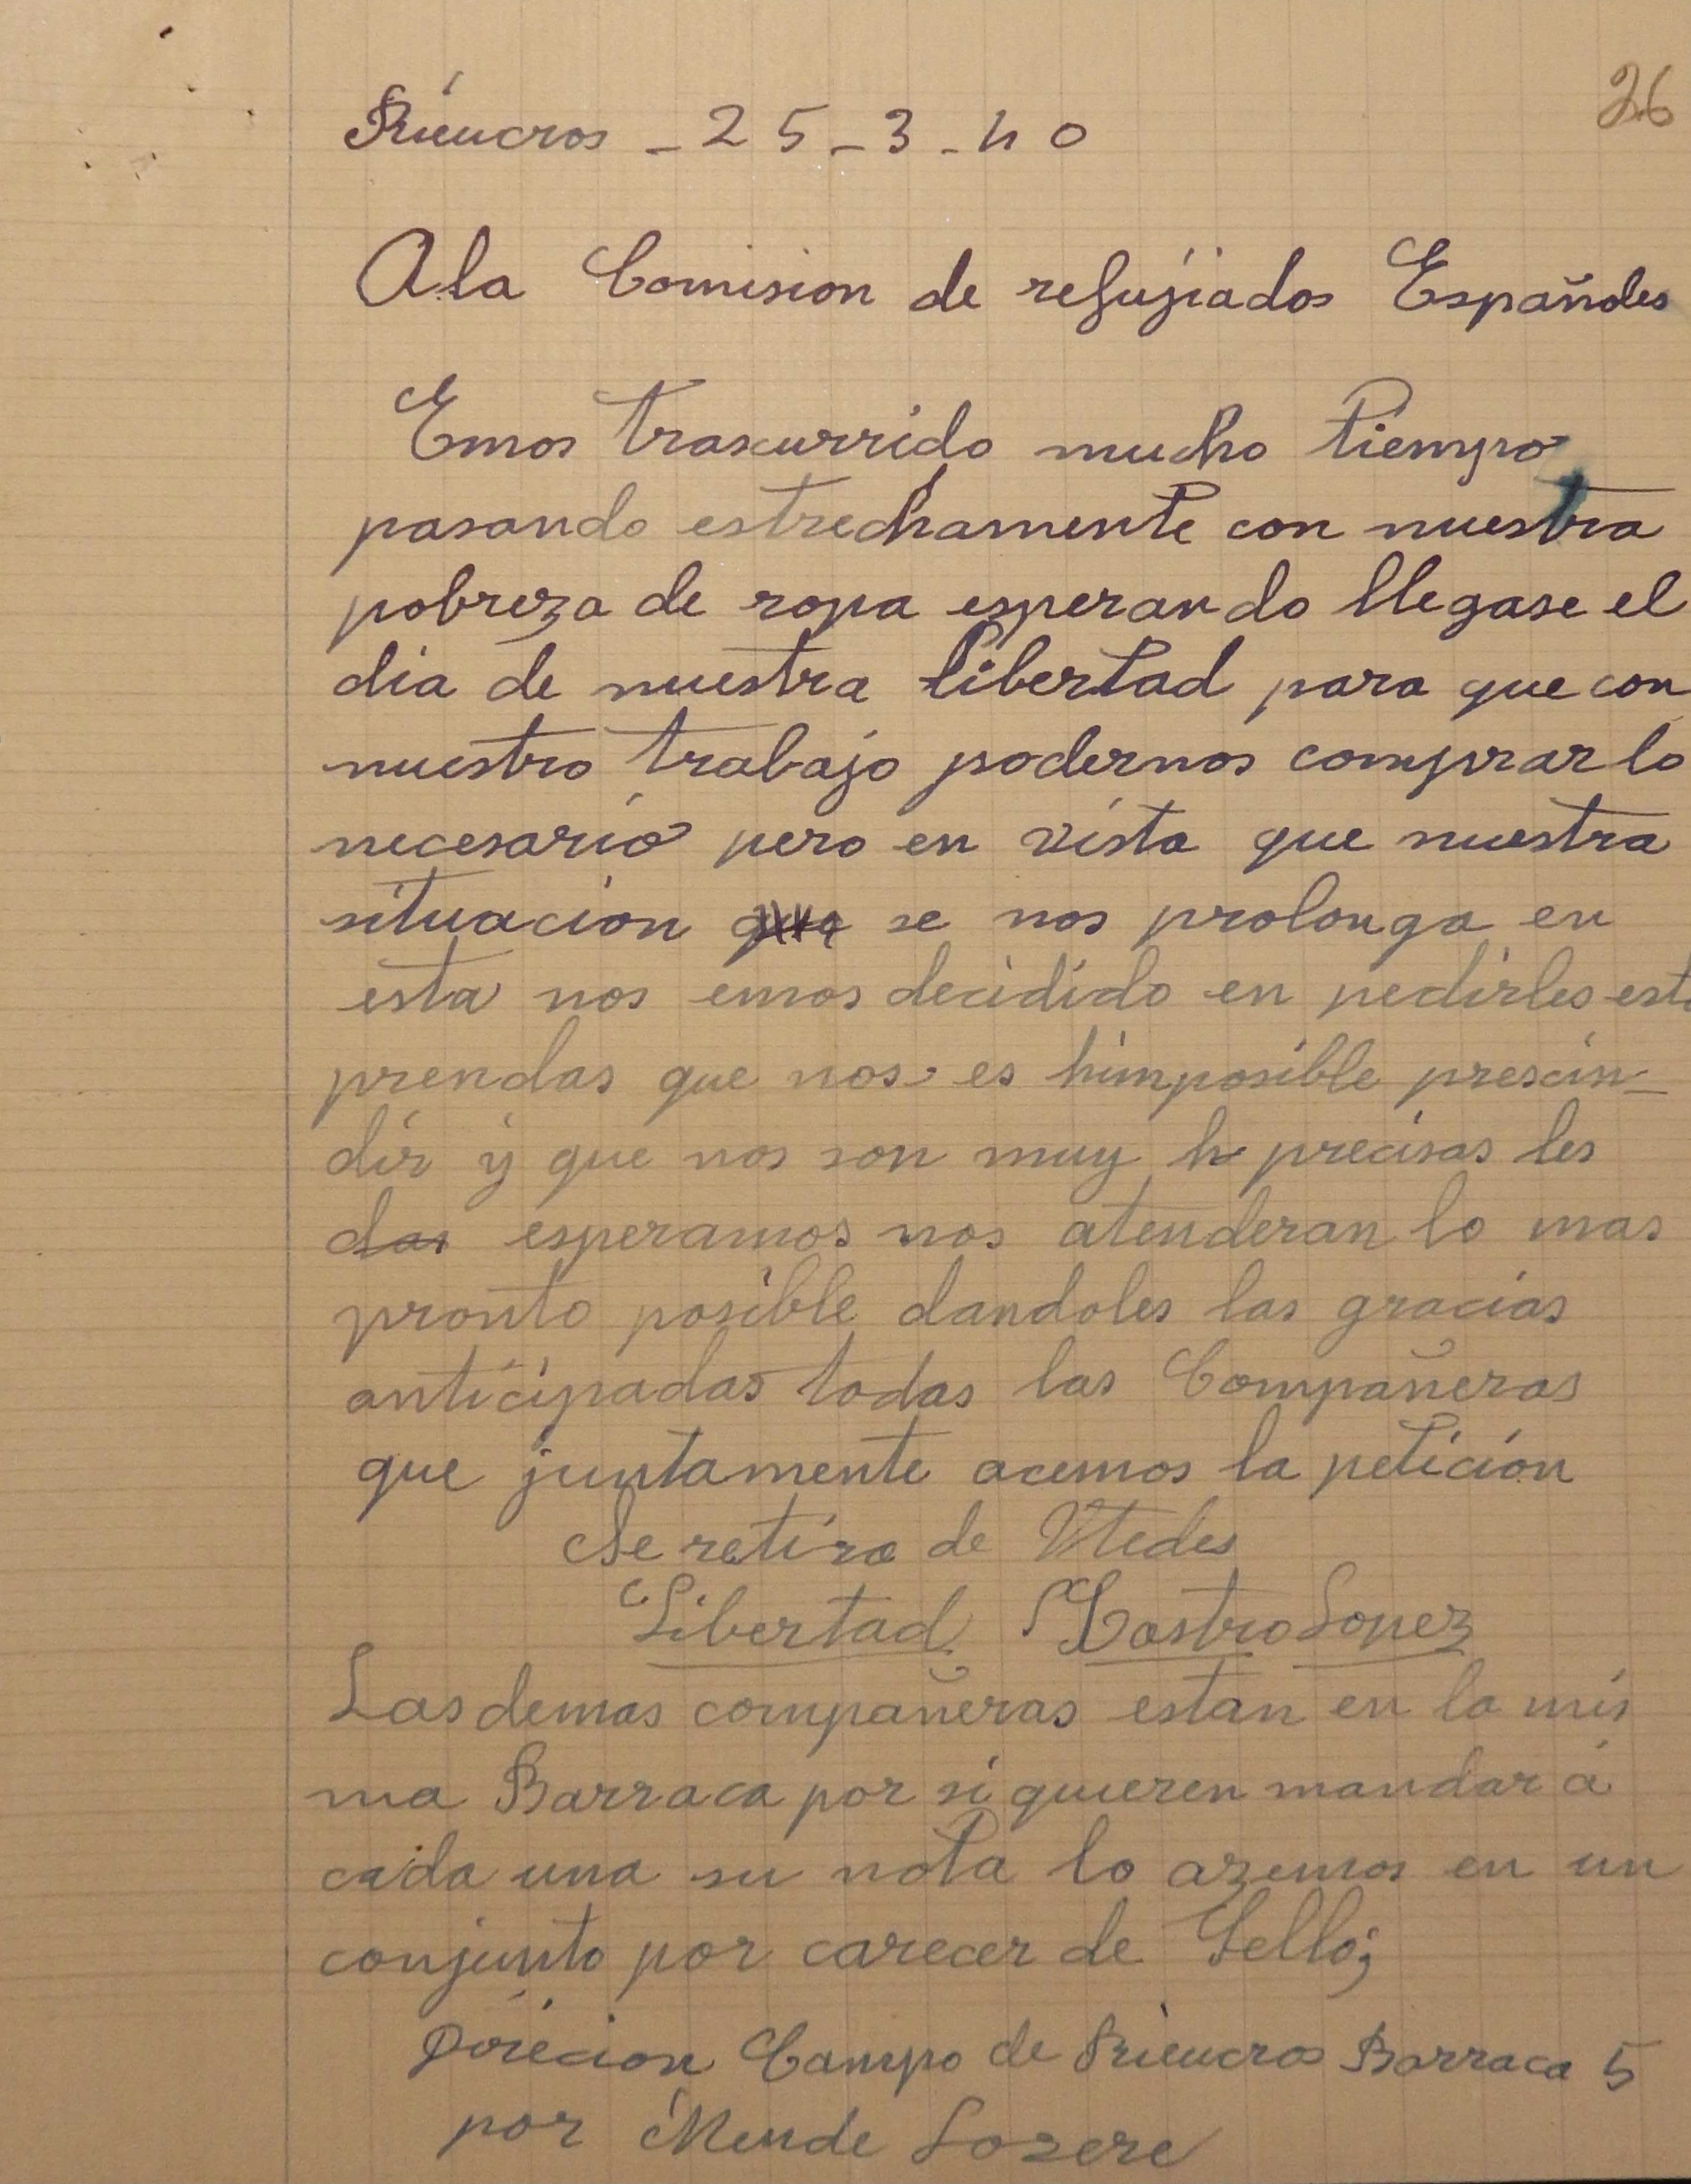 26
Riéucros - 25-3-40
A la Comision de refujiados Españoles
Emos trascurrido mucho tiempo
pasando estrechamente con nuestra
pobreza de ropa esperando llegase el
dia de nuestra libertad para que con
nuestro trabajo podernos comprar lo
necesario pero en vista que nuestra
situacion que se nos prolonga en
esta nos emos decidido en pedirles est
prendas que nos es himposible prescin-
dir y que nos son muy h precisas les
das esperamos nos atenderan lo mas
pronto posible dandoles las gracias
anticipadas todas las Compañeras
que juntamente acemos la petición
Se retira de Vtedes
Libertad Castro Lopez
Las demas compañeras estan en la mis
ma Barraca por si quieren mandar á
cada una su nota lo azemos en un
conjunto por carecer de Sello;
Direcion Campo de Rieucros Barraca 5
por Mende Lozere